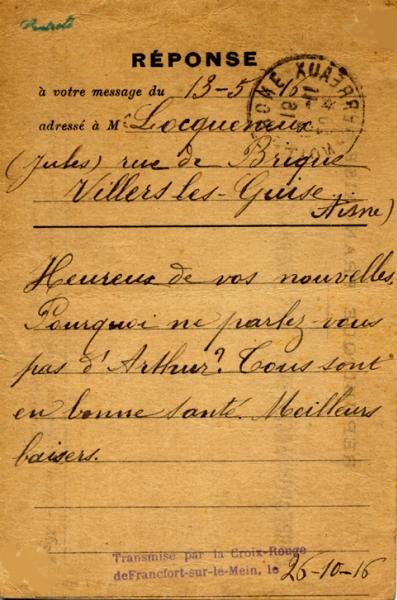 RÉPONSE
à votre message du 13-5
adressé à M. Locqueneux
(Jules) rue de Brique
Villers les-Guise
Aisne)
Heureux de vos nouvelles.
Pourquoi ne parlez-vous
pas d'Arthur? Tous sont
en bonne santé. Meilleurs
baisers.
Transmise par la Croix-Rouge
deFrancfort-sur-le-Mein, le 26-10-16